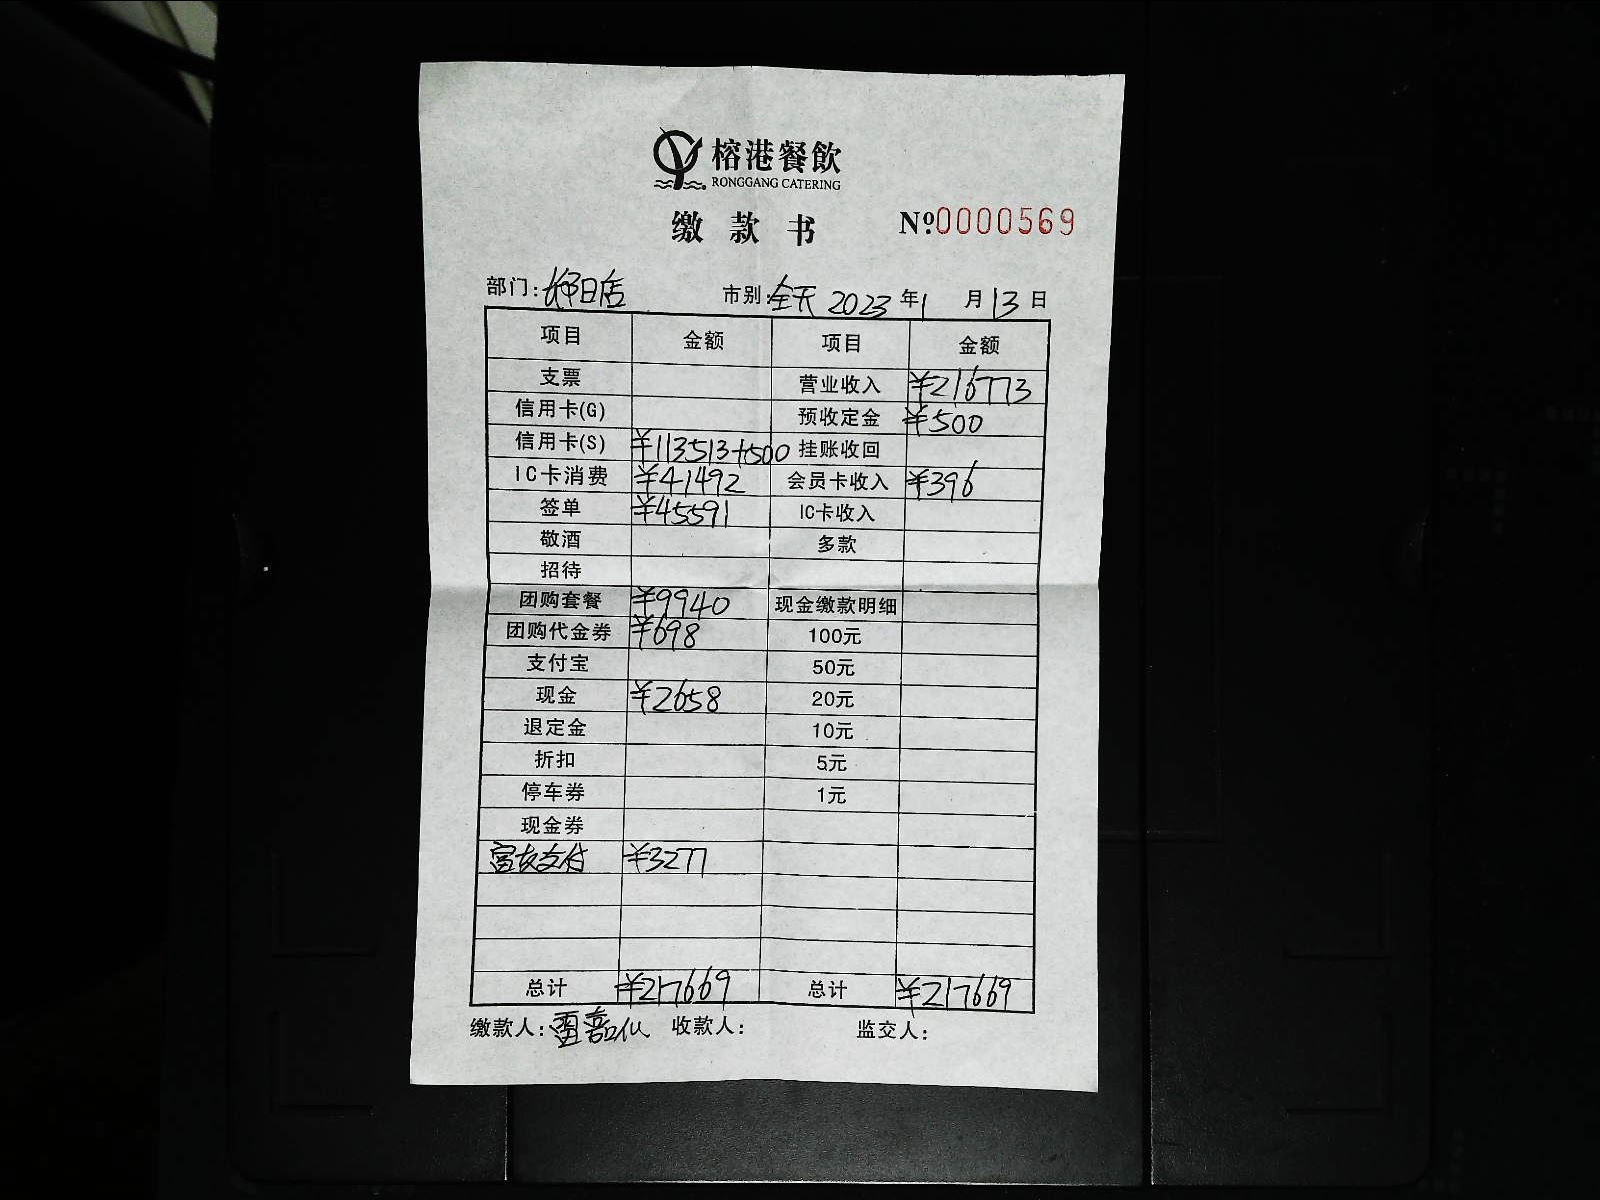 榕港餐飲
RONGGANG CATERING
缴款书 №0000569
部门: 市别:全天 2023年1月13日
项目 金额 项目 金额
支票 营业收入 ¥216773
信用卡(G) 预收定金 ¥500
信用卡(S) ¥113513+500 挂账收回
IC卡消费 ¥41492 会员卡收入 ¥396
签单 ¥45591 IC卡收入
敬酒 多款
招待
团购套餐 ¥9940 现金缴款明细
团购代金券 ¥698 100元
支付宝 50元
现金 ¥2658 20元
退定金 10元
折扣 5元
停车券 1元
现金券
富友支付 ¥3277
总计 ¥217669 总计 ¥217669
缴款人: 收款人: 监交人: